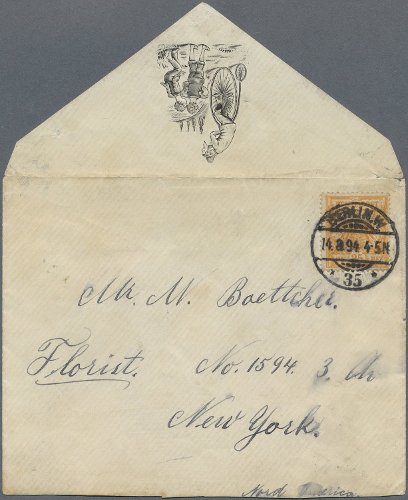 BERLIN.W.
14.8.94 4-5N
* 35 *
Mr. M. Boettcher.
Florist. No. 1594. 3.
New York.
Nord America